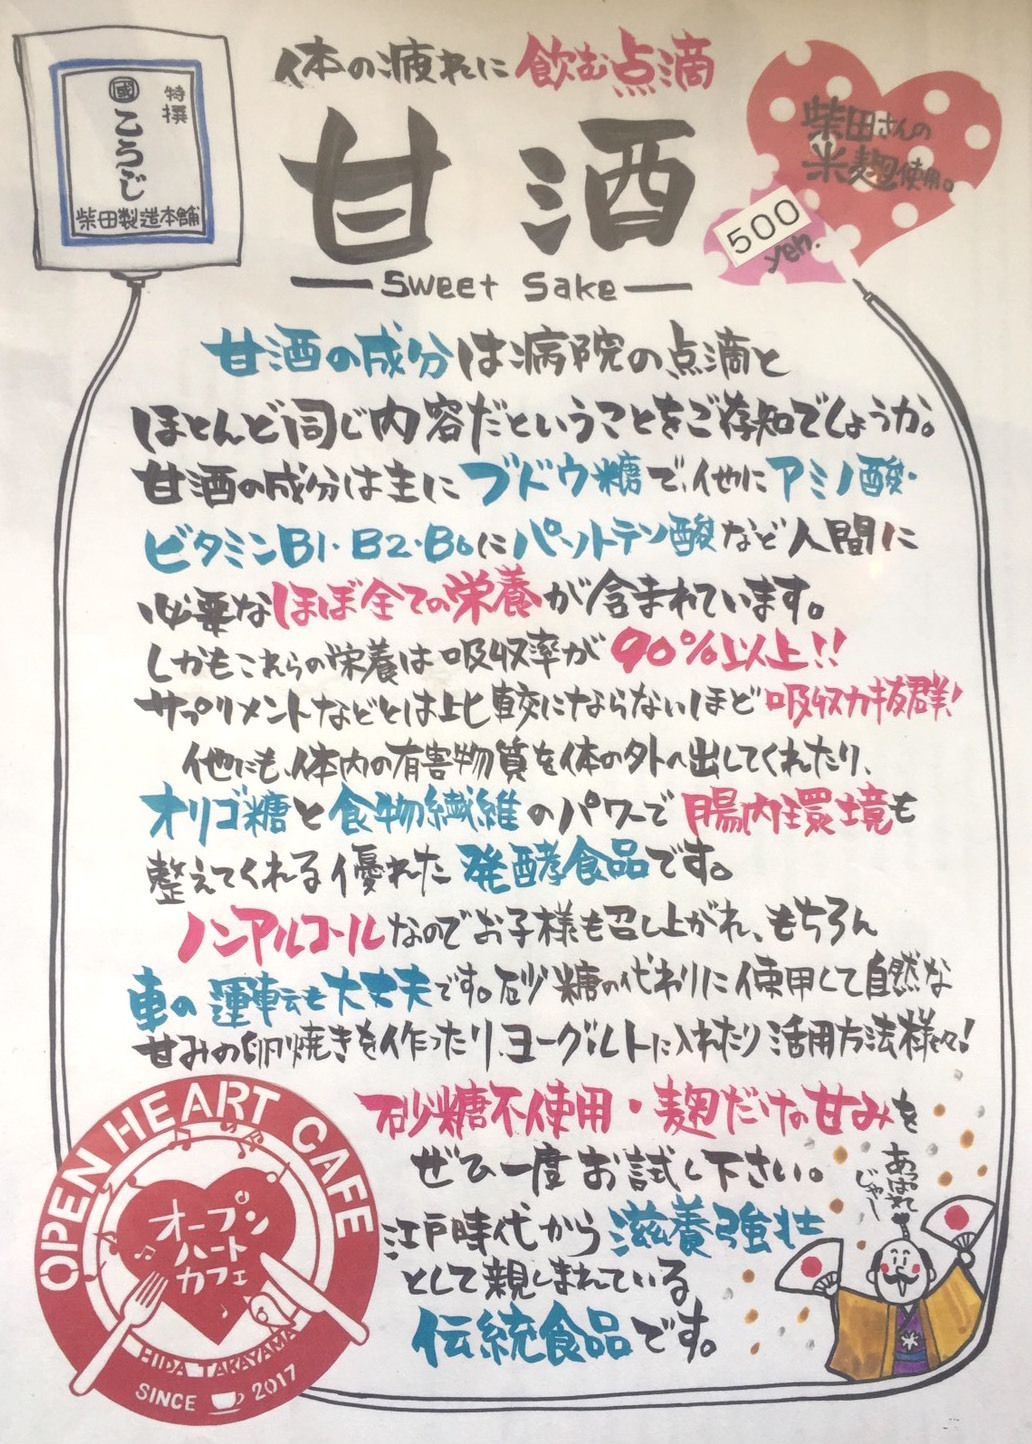 体の疲れに飲む点滴
特撰
國こうじ
柴田製造本舗
甘酒
Sweet Sake
柴田さんの
米麹使用。
500
yen.
甘酒の成分は病院の点滴と
ほとんど同じ内容だということをご存知でしょうか。
甘酒の成分は主にブドウ糖で、他にアミノ酸・
ビタミンB1・B2・B6にパントテン酸など人間に
必要なほぼ全ての栄養が含まれています。
しかもこれらの栄養は吸収率が90%以上!!
サプリメントなどとは比較にならないほど吸収力抜群!
他にも、体内の有害物質を体の外へ出してくれたり、
オリゴ糖と食物繊維のパワーで腸内環境も
整えてくれる優れた発酵食品です。
ノンアルコールなのでお子様も召し上がれ、もちろん
車の運転も大丈夫です。砂糖の代わりに使用して自然な
甘みの卵焼きを作ったり、ヨーグルトに入れたり活用方法様々!
砂糖不使用・麹だけの甘みを
ぜひ一度お試し下さい。
江戸時代から滋養強壮
として親しまれている
伝統食品です。
あっぱれ
じゃー
OPEN HEART CAFE
オープン
ハート
カフェ
HIDA TAKAYAMA
SINCE 2017